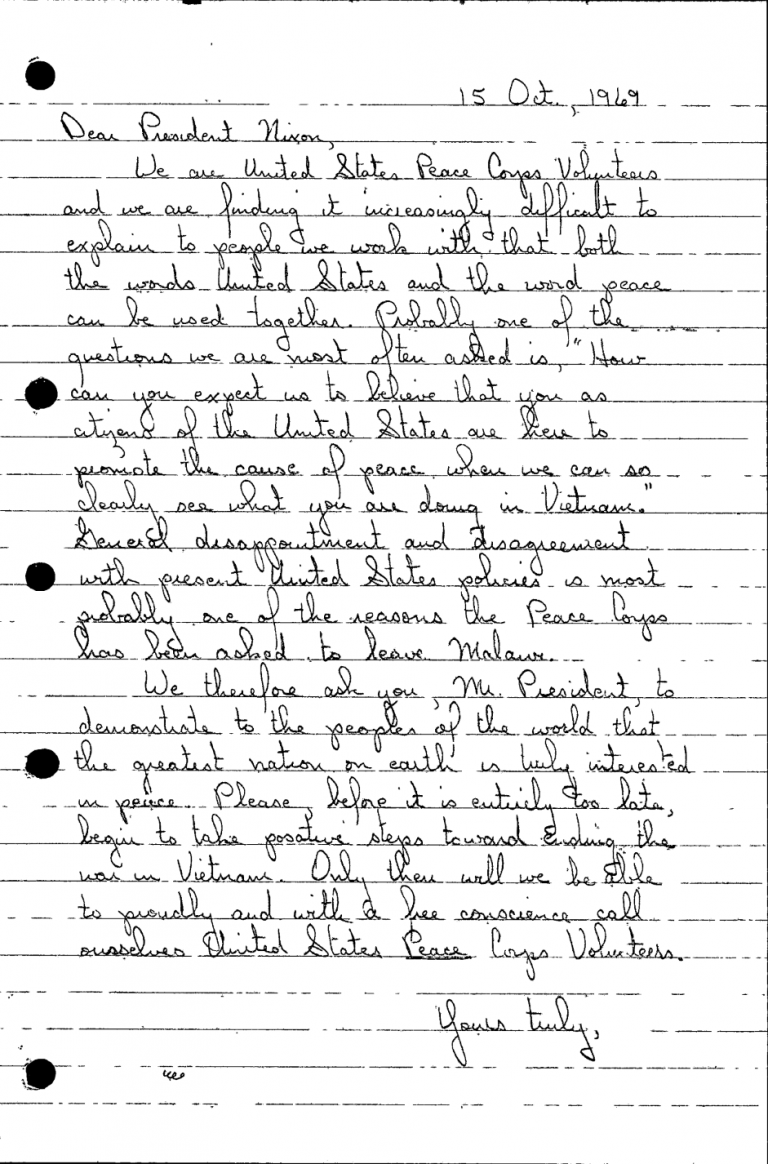 15 Oct., 1969
Dear President Nixon,
We are United States Peace Corps Volunteers
and we are finding it increasingly difficult to
explain to people we work with that both
the words United States and the word peace
can be used together. Probably one of the
questions we are most often asked is, "How
can you expect us to believe that you as
citizens of the United States are here to
promote the cause of peace when we can so
clearly see what you are doing in Vietnam."
General disappointment and disagreement
with present United States policies is most
probably one of the reasons the Peace Corps
has been asked to leave Malawi.
We therefore ask you, Mr. President, to
demonstrate to the peoples of the world that
the greatest nation on earth is truly interested
in peace. Please, before it is entirely too late,
begin to take posative steps toward ending the
war in Vietnam. Only then will we be able
to proudly and with a free conscience call
ourselves United States Peace Corps Volunteers.
Yours truly,